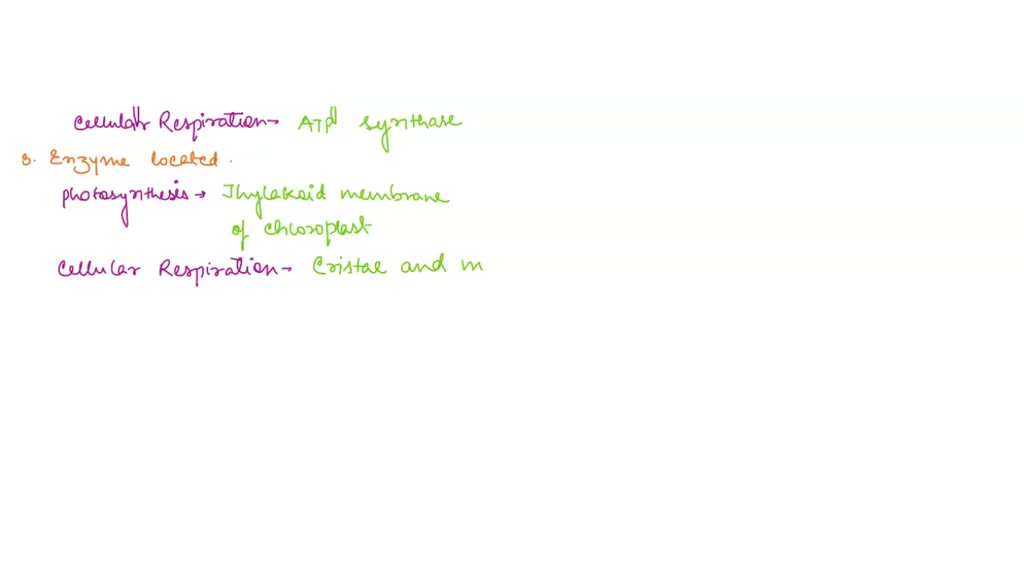 Cellular Respiration → ATP synthase
3. Enzyme located.
photosynthesis → Thylakoid membrane
of chloroplast
Cellular Respiration → Cristae and m